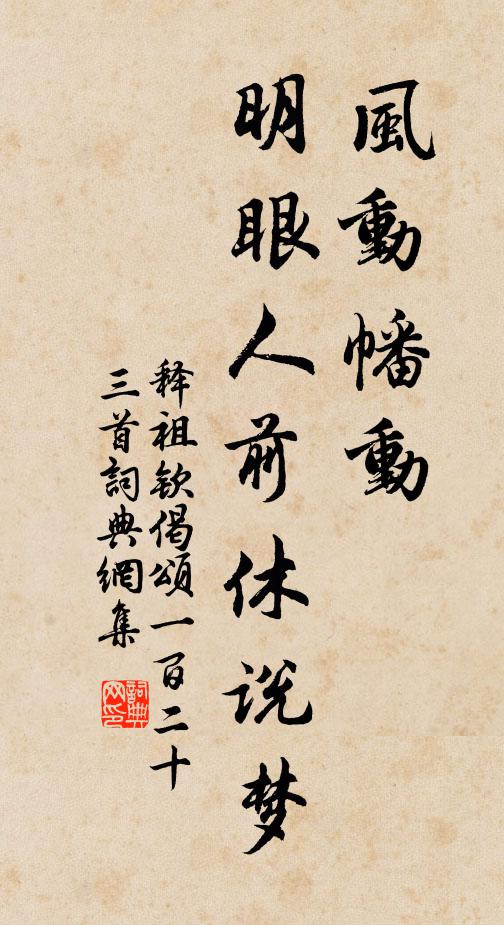 風動幡動
明眼人前休说梦
释祖钦偈頌一百二十
三首詞典網集
詞典
网印